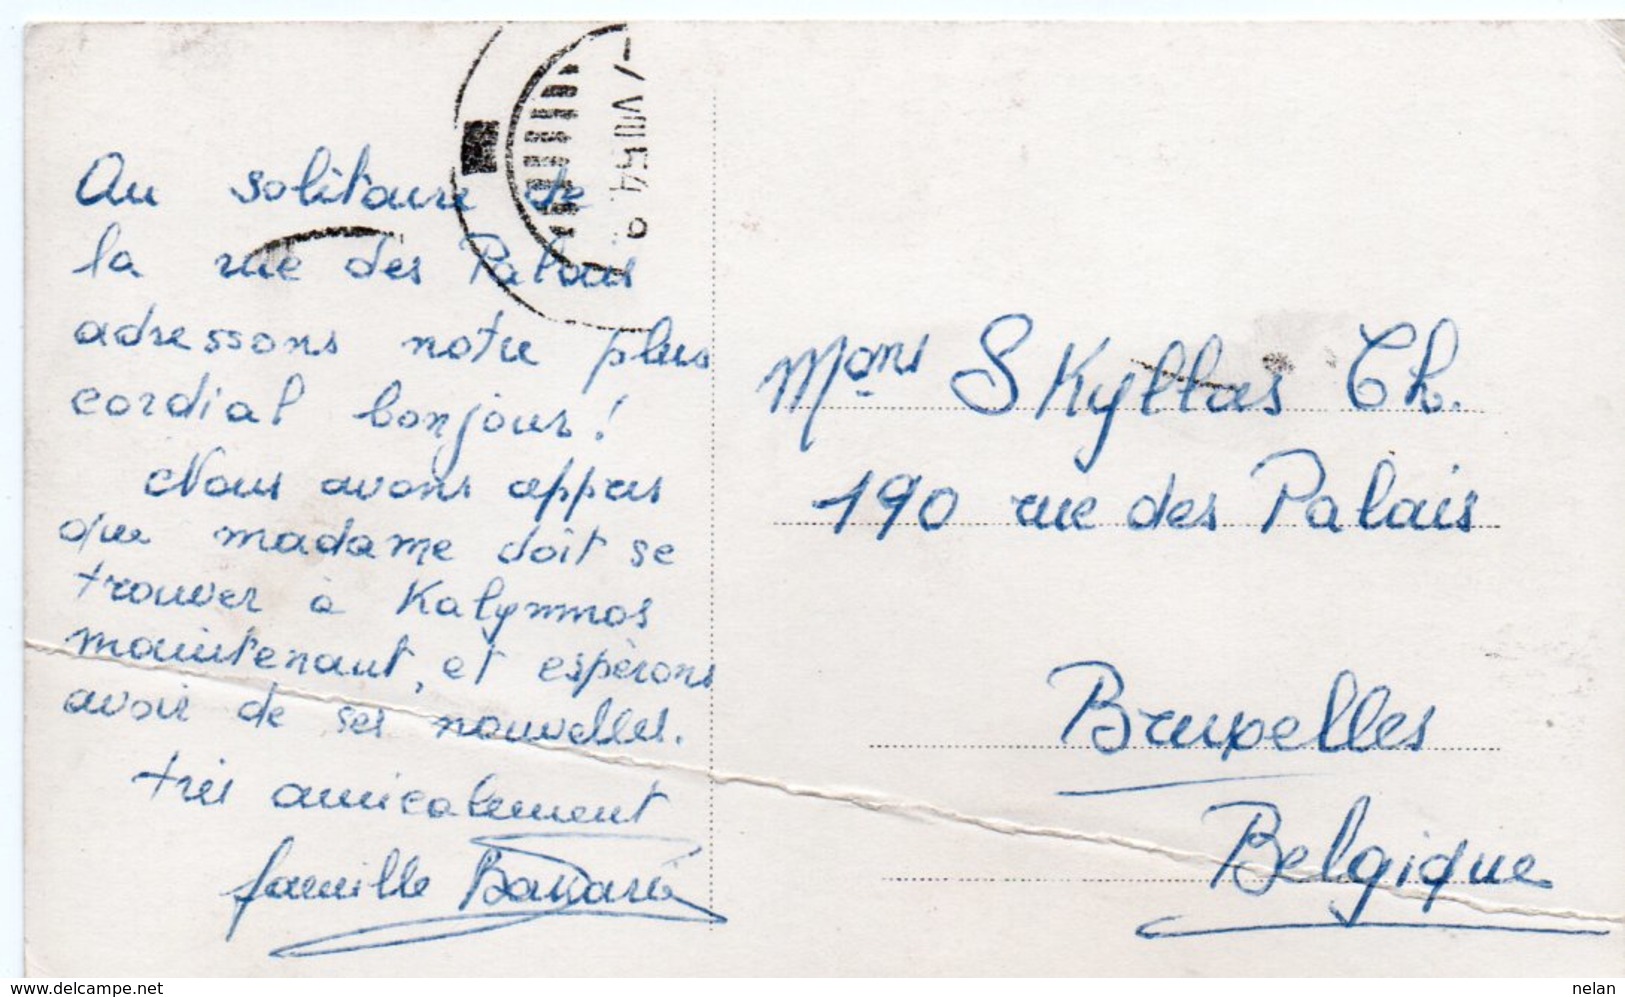 -7 VIII 54. 9
Au solitaire de
la rue des Palais
adressons notre plus
cordial bonjour!
Nous avons appris
que madame doit se
trouver à Kalymnos
maintenant, et espèrons
avoir de ses nouvelles.
très amicalement
famille
Mons Skyllas Ch.
190 rue des Palais
Bruxelles
Belgique
www.delcampe.net
nelan